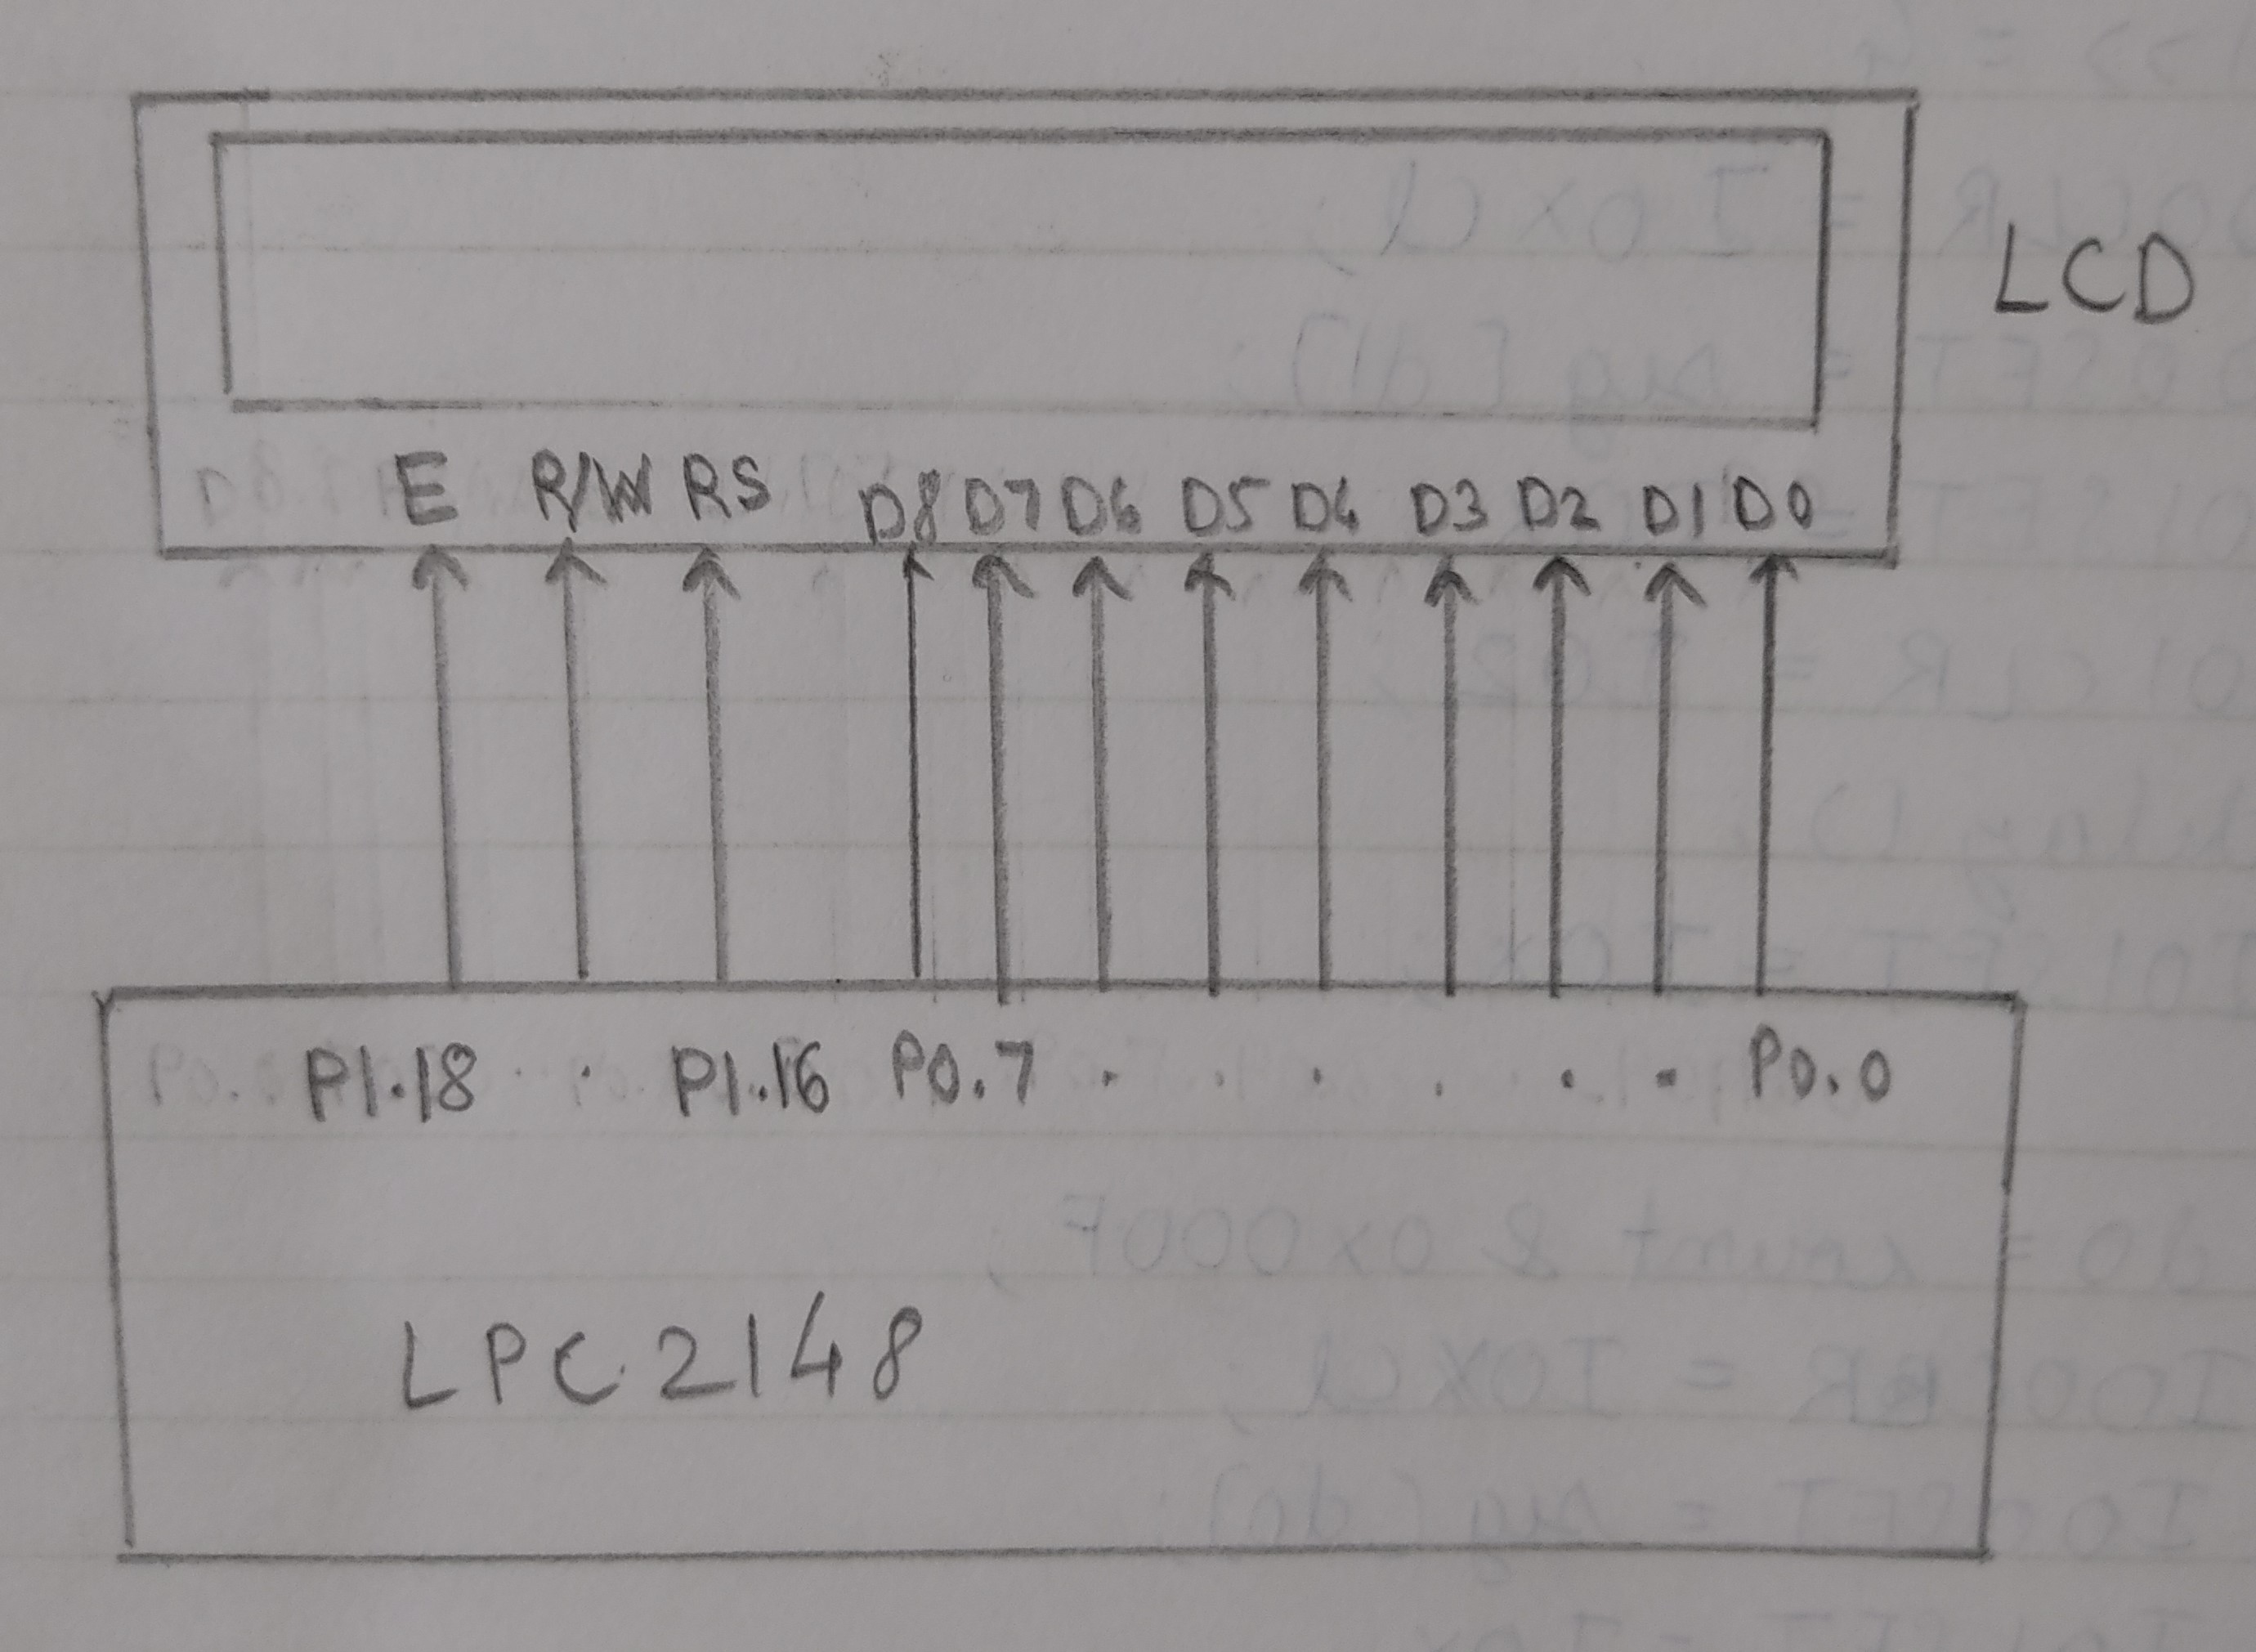 LCD
E R/W RS D8 D7 D6 D5 D4 D3 D2 D1 D0
P1.18 . . P1.16 P0.7 . . . . . . P0.0
LPC 2148